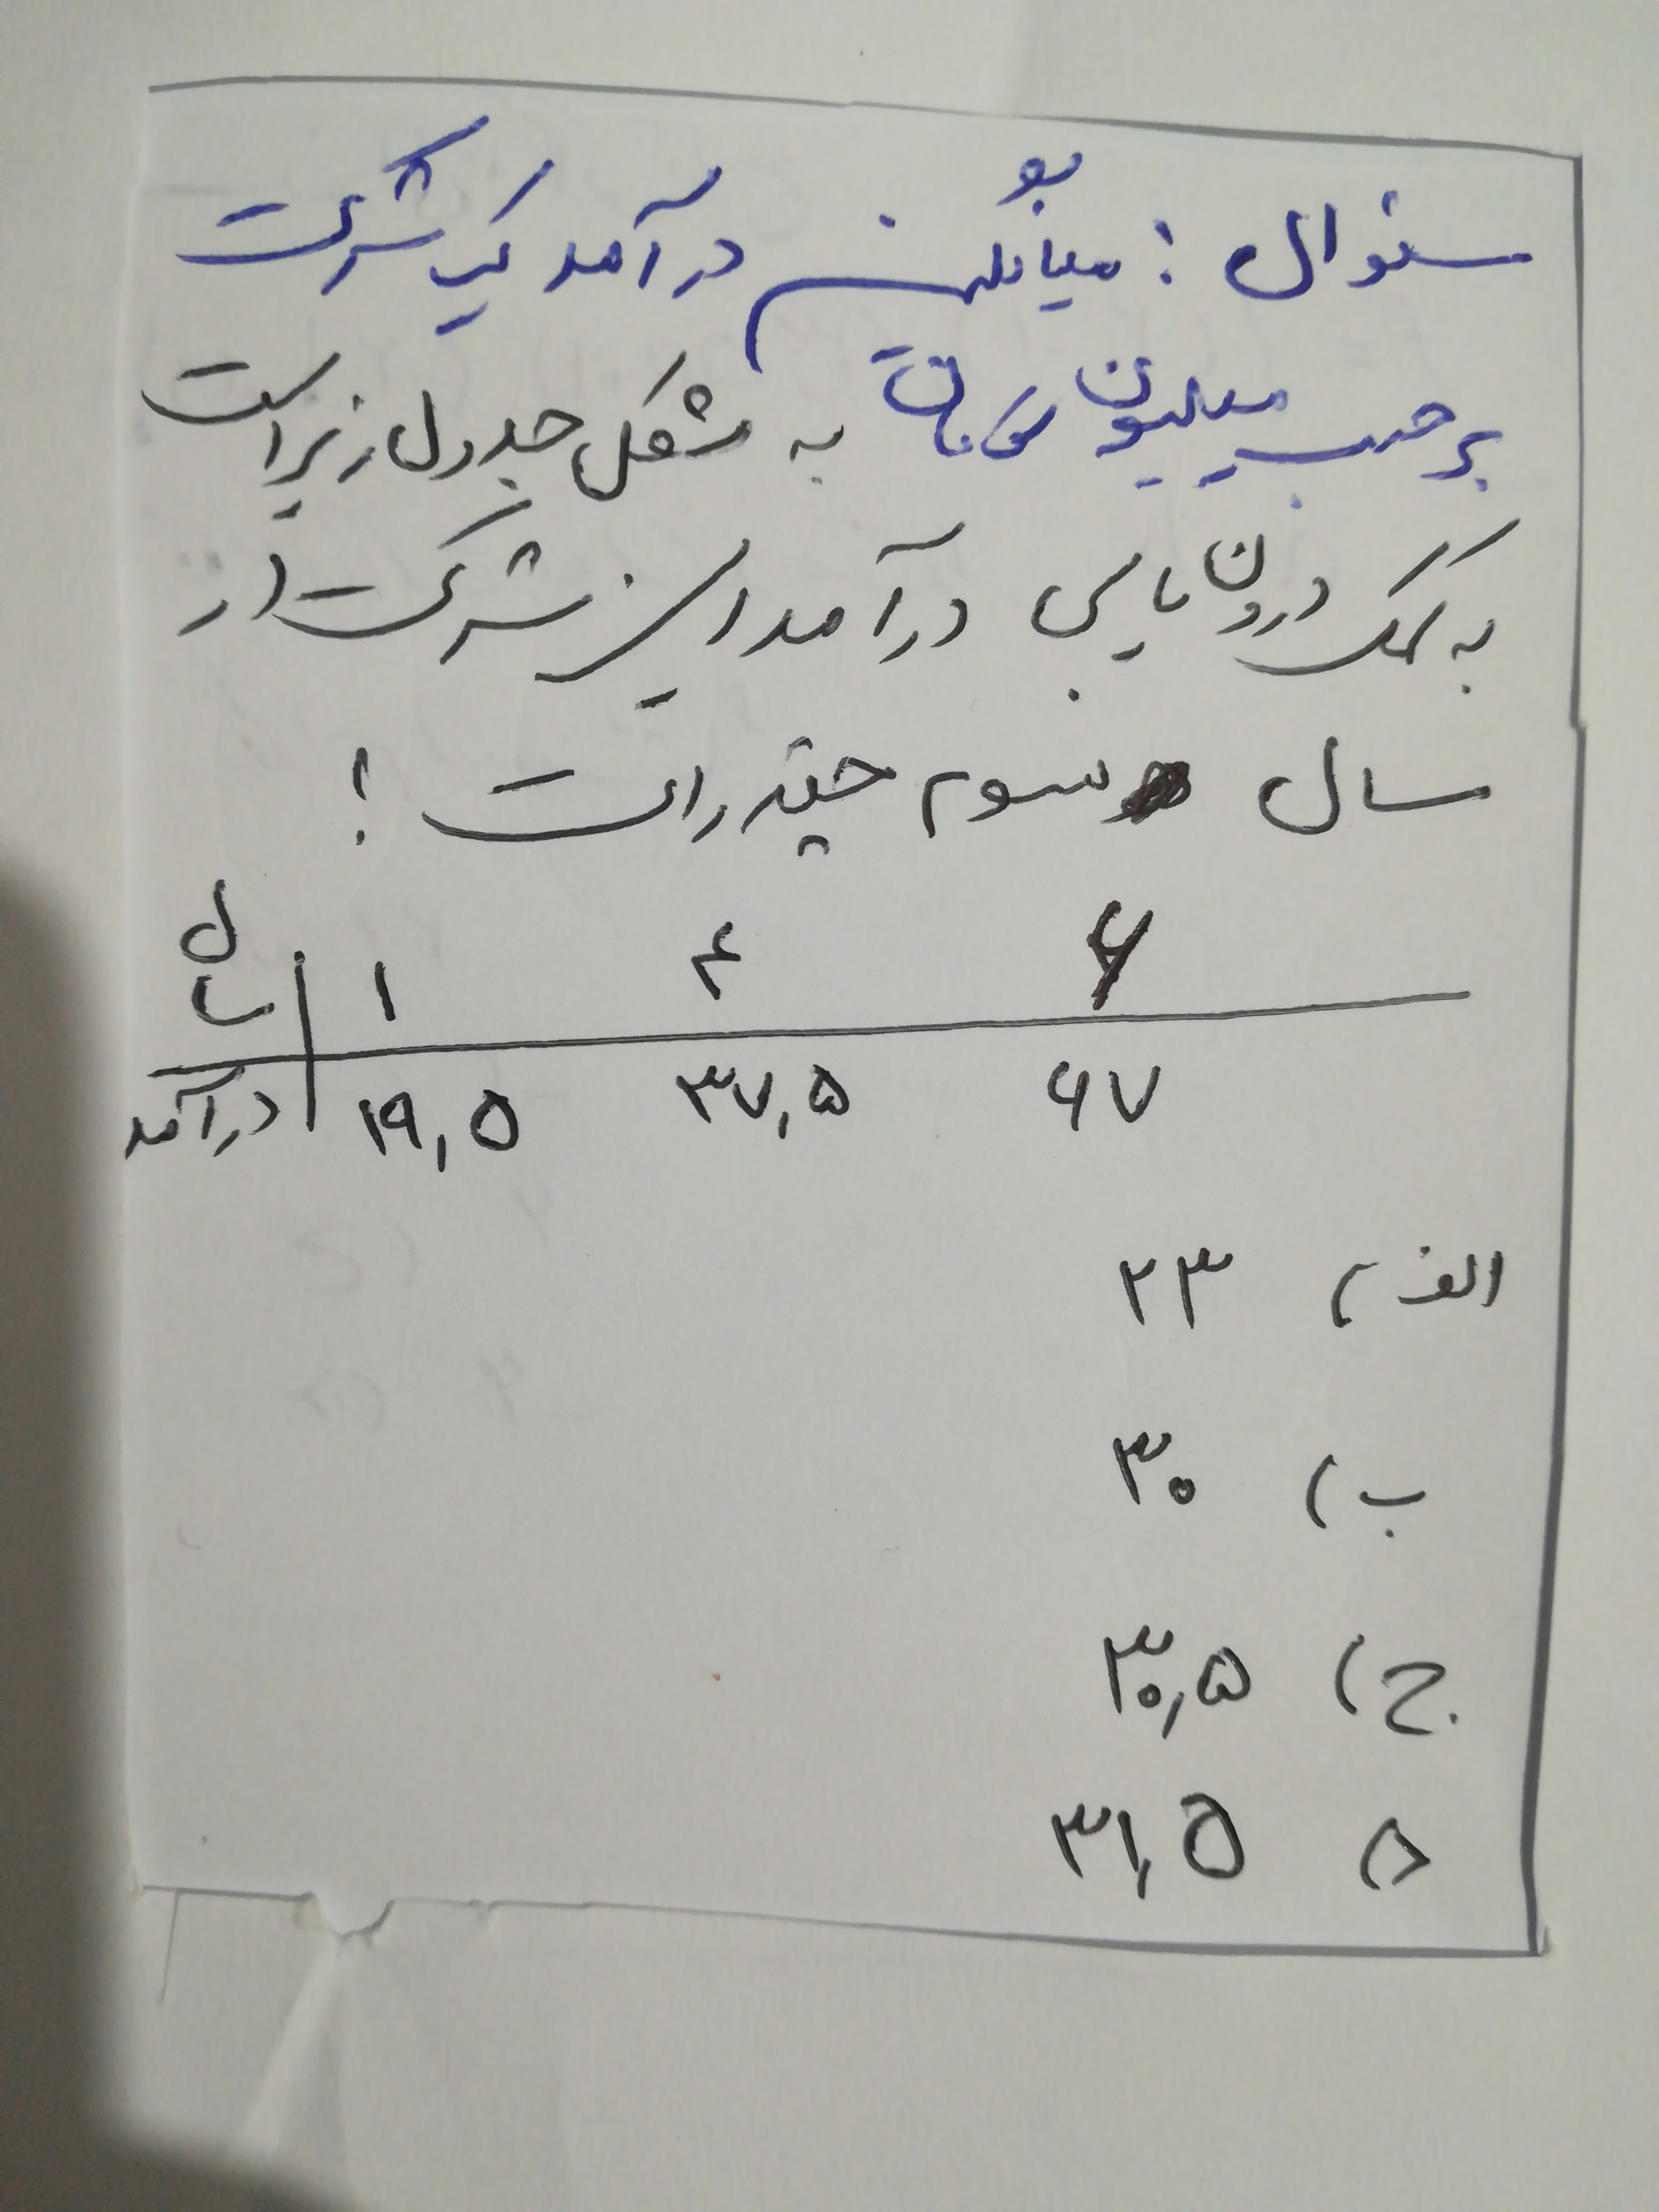 سئوال : میانگین درآمد یک شرکت
بر حسب میلیون تومان به شکل جدول زیر است
به کمک درون یابی درآمد این شرکت در
سال سوم چقدر است ؟
سال ۱ ۴ ۶
درآمد ۱۹,۵ ۳۷,۵ ۶۷
الف) ۲۳
ب) ۳۰
ج) ۳۰,۵
د) ۳۱,۵